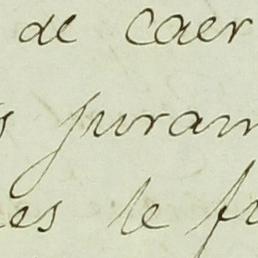 de caer
s juram
es le fu